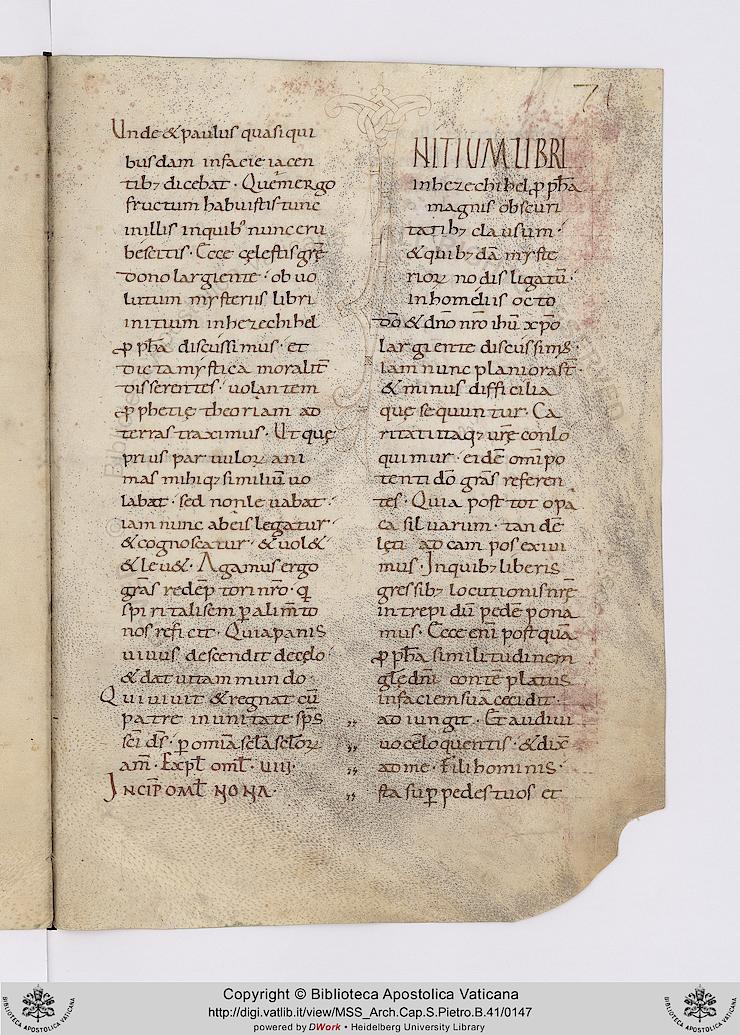 71
Unde & paulus quasi qui
busdam infacie iacen
tibꝫ dicebat · Quēm ergo
fructum habuistis tunc
inillis inquibꝰ nunc eru
bescitis · Ecce cęlestis grē
dono largiente · ob uo
lutum mysteriis libri
initium inhezechihel
ꝓpħa discussimus · et
dicta mystica moralit̄
disserentes · uolantem
ꝓphetię theoriam ad
terras traximus · Ut quę
prius paruuloꝝ ani
mas mihiqꝫ similiū uo
labat · sed non leuabat ·
iam nunc ab eis legatur ·
& cognoscatur · & uol&
& leu& · Agamus ergo
grās redēptori nr̄o · q̄
spiritali sempꝑ alim̄to
nos reficit · Quia panis
uiuus descendit decęlo
& dat uitam mundo ·
Qui uiuit & regnat cū
patre in unitate sp̄s
sc̄i d̄s · ꝑ omīa sc̄la sc̄loꝝ
am̄ · Expł omł · uiii ·
Incip̄ omł NONA ·
NITIUM LIBRI
inhezechihel ꝓpħa
magnis obscuri
tatibꝫ clausum ·
& quibꝫdā myste
rioꝝ nodis ligatū ·
in homeliis octo
dō & dn̄o nr̄o ihū xp̄o
largiente discussimꝰ ·
Iam nunc planiora st̄ ·
& minus difficilia
quę sequuntur · Ca
ritati itaqꝫ ur̄ę conlo
quimur · eidē om̄ipo
tenti dō grās referen
tes · Quia post tot opa
ca siluarum · tandē
lęti ad campos exiui
mus · In quibꝫ liberis
gressibꝫ locutionis nr̄ę
intrepidū pedē pona
mus · Ecce eni postquā
ꝓpħa similitudinem
glę dn̄i contēplatus
infaciem suā cecidit ·
adiungit · Et audiui
uocē loquentis · & dix̄
ad me · Fili hominis ·
sta suꝑ pedes tuos et
Copyright © Biblioteca Apostolica Vaticana
http://digi.vatlib.it/view/MSS_Arch.Cap.S.Pietro.B.41/0147
powered by DWork • Heidelberg University Library